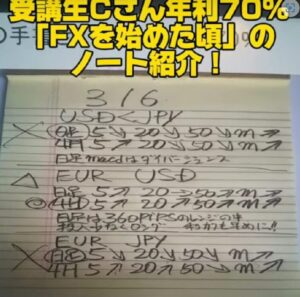 受講生Cさん年利70%
「FXを始めた頃」の
ノート紹介!
3/6
USD<JPY
× 日足 5↘ 20↘ 50↘ m↗
4H 5↗ 20↗ 50↘ m↗
日足macdはダイバージェンス
△ EUR USD
日足 5↗ 20→ 50↗ m↗
◎ 4H 5↗ 20↗ 50↗ m↗
日足は360PiPSのレンジの中
EUR JPY
× 日足 5↘ 20↘ 50↘ m↗
4H 5↗ 20↗ 50↘ m↗